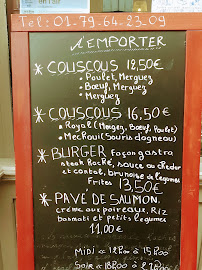 Tel: 01-79-64-23-09
à EMPORTER
* COUSCOUS 12,50€
• Poulet, Merguez
• Bœuf, Merguez
• Merguez
* COUSCOUS 16,50€
• Royal (Merguez, Bœuf, Poulet)
• Mechoui (Souris d'agneau)
* BURGER façon gastra
steak haché, sauce au cheddar
et cantal, brunoise de légumes
Frites 13,50€
* PAVE DE SAUMON.
crème aux poireaux, Riz
basmati et petits légumes
11,00€
MIDI 12h00 à 15h00
Soir 18h00 à